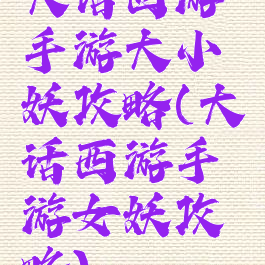 大话西游
手游大小
妖攻略(大
话西游手
游女妖攻
略)